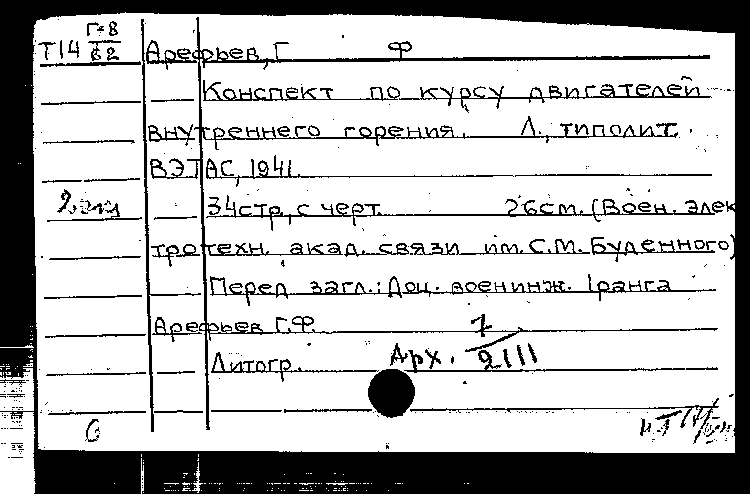 Т14 Г-8/62 Арефьев, Г Ф
Конспект по курсу двигателей
внутреннего горения. Л., типолит.
ВЭТАС, 1941.
2 экз 34стр, с черт. 26см. (Воен. элек
тротехн. акад. связи им. С.М. Буденного)
Перед загл.: Доц. военинж. I ранга
Арефьев Г.Ф.
Литогр. Арх. 7/2111